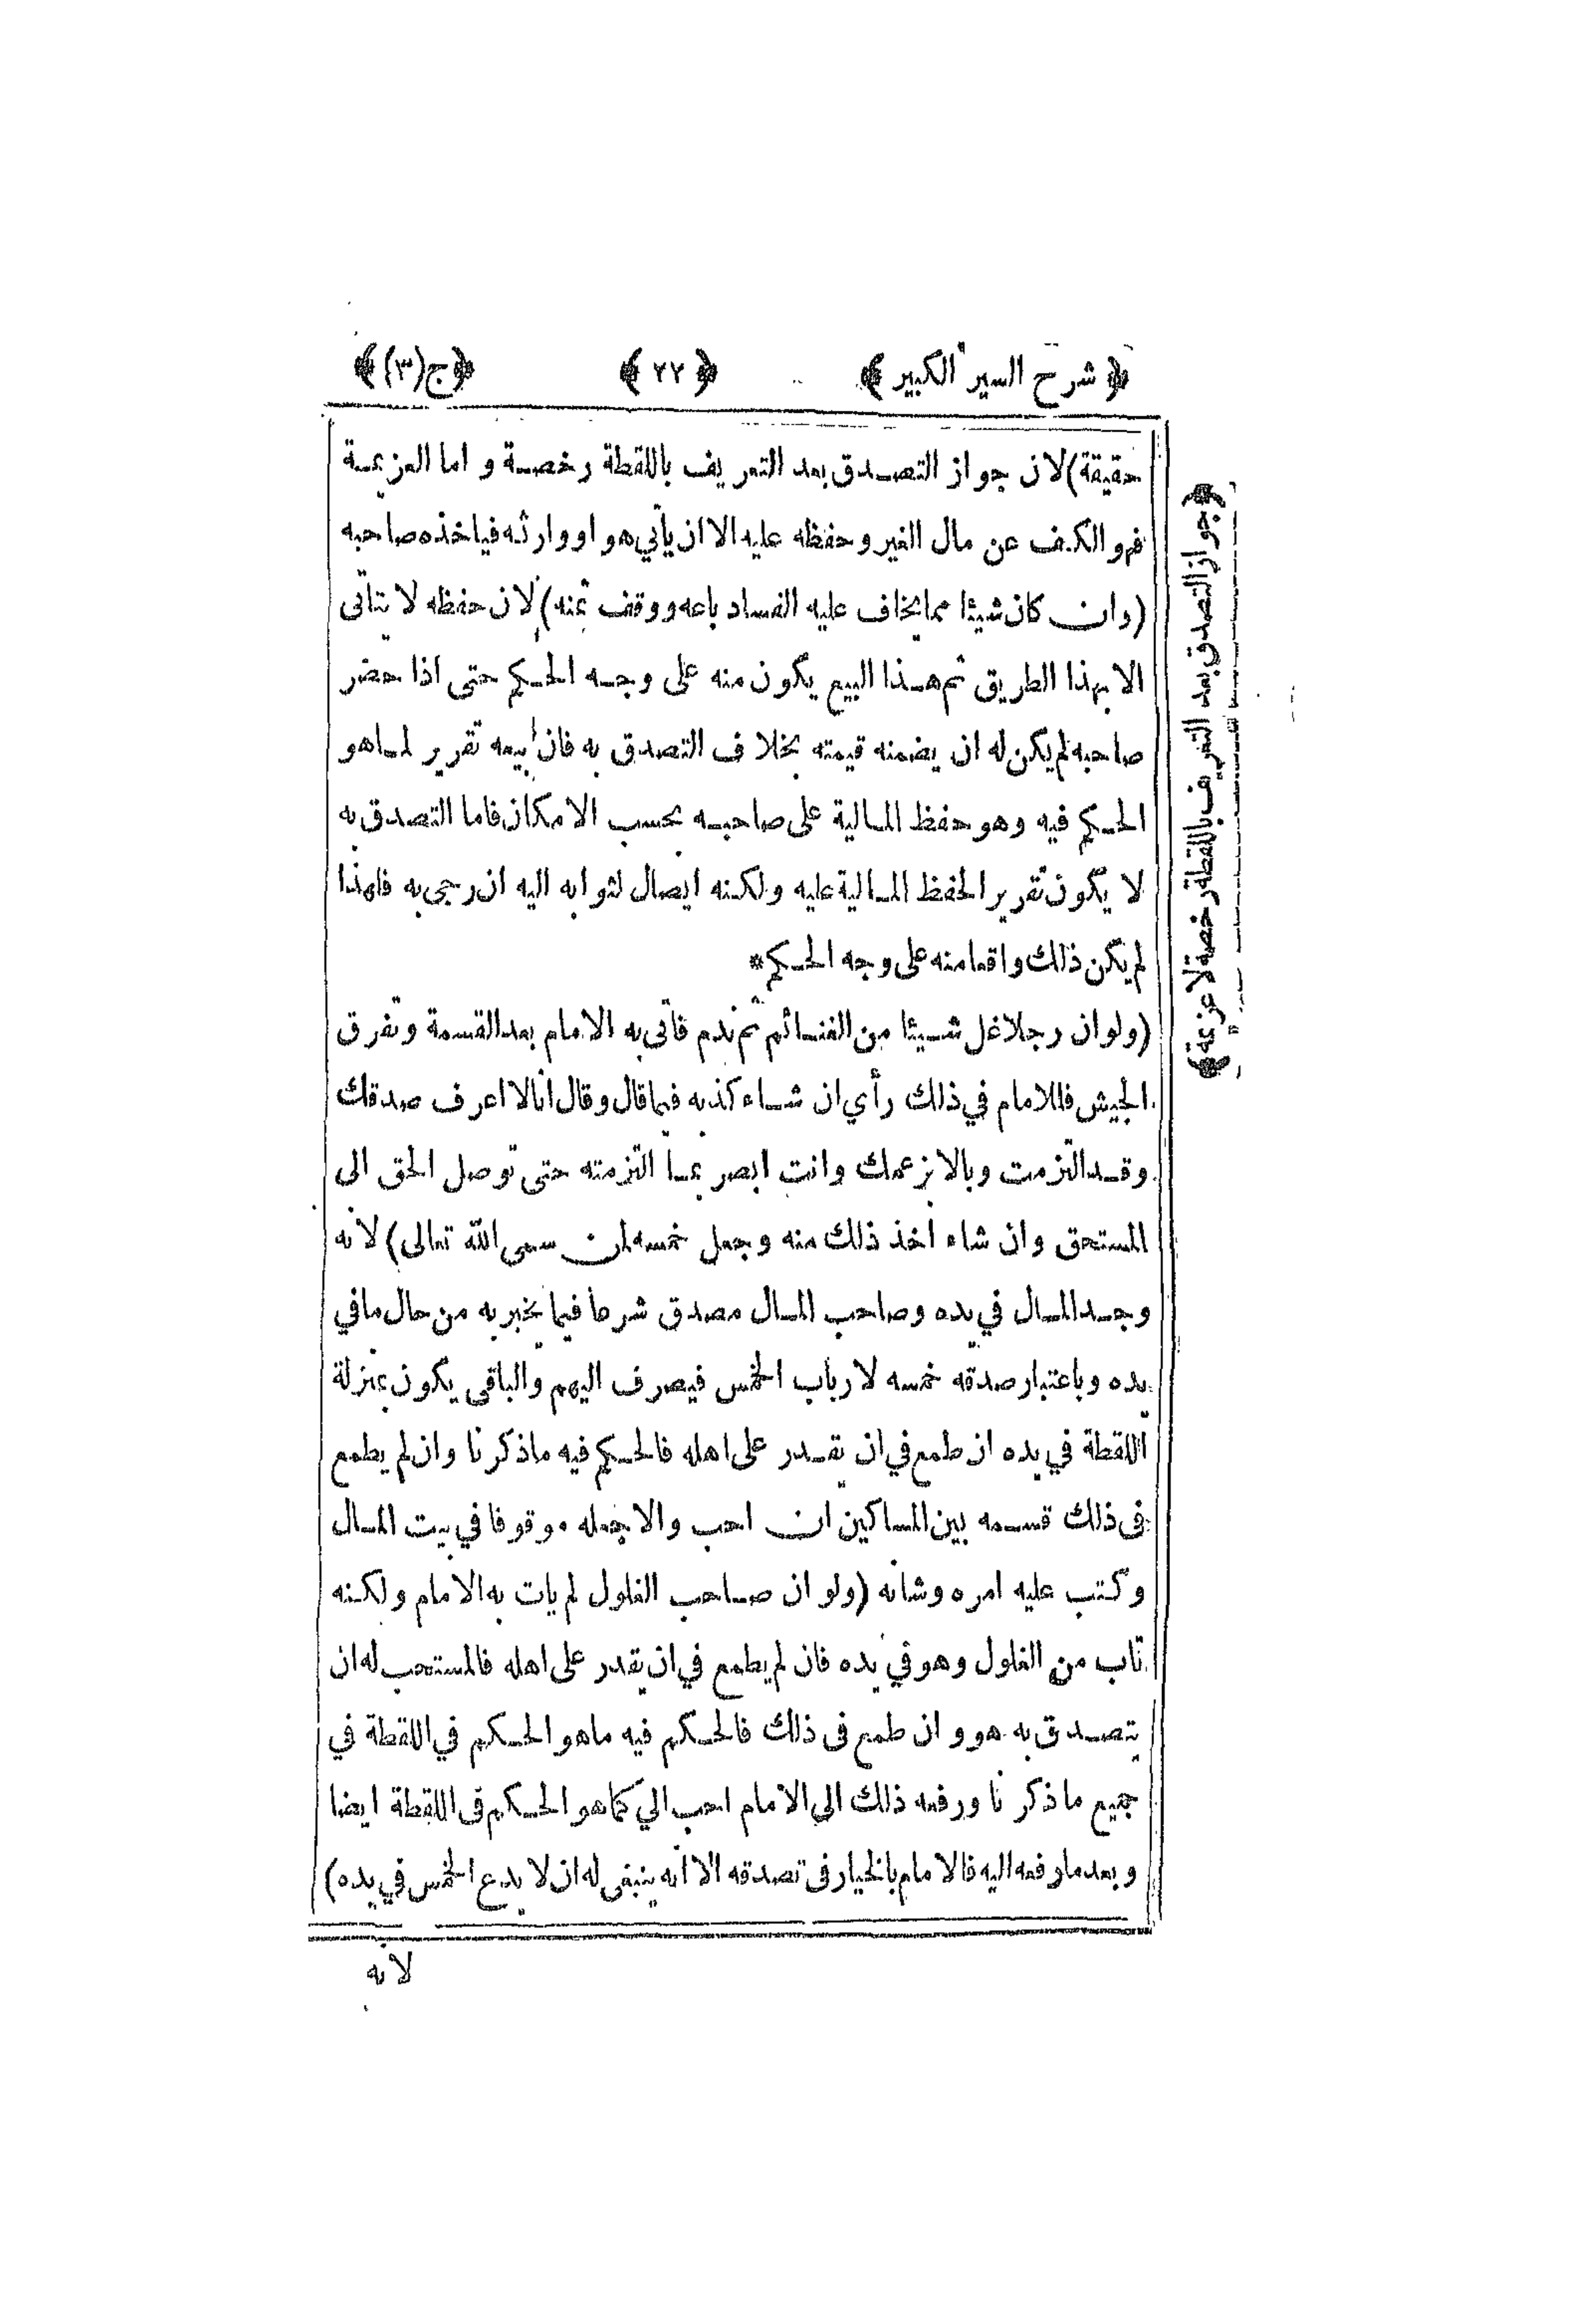 ﴿ شرح السير الكبير ﴾ ﴿ ٢٢ ﴾ ﴿ج(٣)﴾
حقيقة) لان جواز التصدق بعد التعريف باللقطة رخصة و اما العزيمة
فهو الكف عن مال الغير و حفظه عليه الا ان يأتي هو او وارثه فياخذه صاحبه
(وان كان شيئا مما يخاف عليه الفساد باعه ووقف ثمنه) لان حفظه لا يتأتى
الا بهذا الطريق ثم هذا البيع يكون منه على وجه الحكم حتى اذا حضر
صاحبه لم يكن له ان يضمنه قيمته بخلاف التصدق به فان بيعه تقرير لما هو
الحكم فيه وهو حفظ المالية على صاحبه بحسب الامكان فاما التصدق به
لا يكون تقرير الحفظ المالية عليه ولكنه ايصال لثوابه اليه ان رجى به فلهذا
لم يكن ذلك واقعا منه على وجه الحكم*
(ولو ان رجلا غل شيئا من الغنائم ثم ندم فأتى به الامام بعد القسمة وتفرق
الجيش فللامام في ذلك رأي ان شاء كذبه فيما قال وقال انا لا اعرف صدقك
وقد التزمت وبالا بزعمك وانت ابصر بما التزمته حتى توصل الحق الى
المستحق وان شاء اخذ ذلك منه وجعل خمسه لمن سمى الله تعالى) لانه
وجد المال في يده وصاحب المال مصدق شرعا فيما يخبر به من حال ما في
يده وباعتبار صدقه خمسه لارباب الخمس فيصرف اليهم والباقى يكون بمنزلة
اللقطة في يده ان طمع في ان يقدر على اهله فالحكم فيه ما ذكرنا وان لم يطمع
فى ذلك قسمه بين المساكين ان احب والا جعله موقوفا في بيت المال
وكتب عليه امره وشانه (ولو ان صاحب الغلول لم يات به الامام ولكنه
تاب من الغلول وهو في يده فان لم يطمع في ان يقدر على اهله فالمستحب له ان
يتصدق به هو و ان طمع فى ذلك فالحكم فيه ما هو الحكم في اللقطة في
جميع ما ذكرنا ورفعه ذلك الى الامام احب الي كما هو الحكم فى اللقطة ايضا
و بعد ما رفعه اليه فالامام بالخيار فى تصدقه الا انه ينبغى له ان لا يدع الخمس في يده)
لانه
﴿جواز التصدق بعد التعريف باللقطة رخصة لا عزيمة﴾